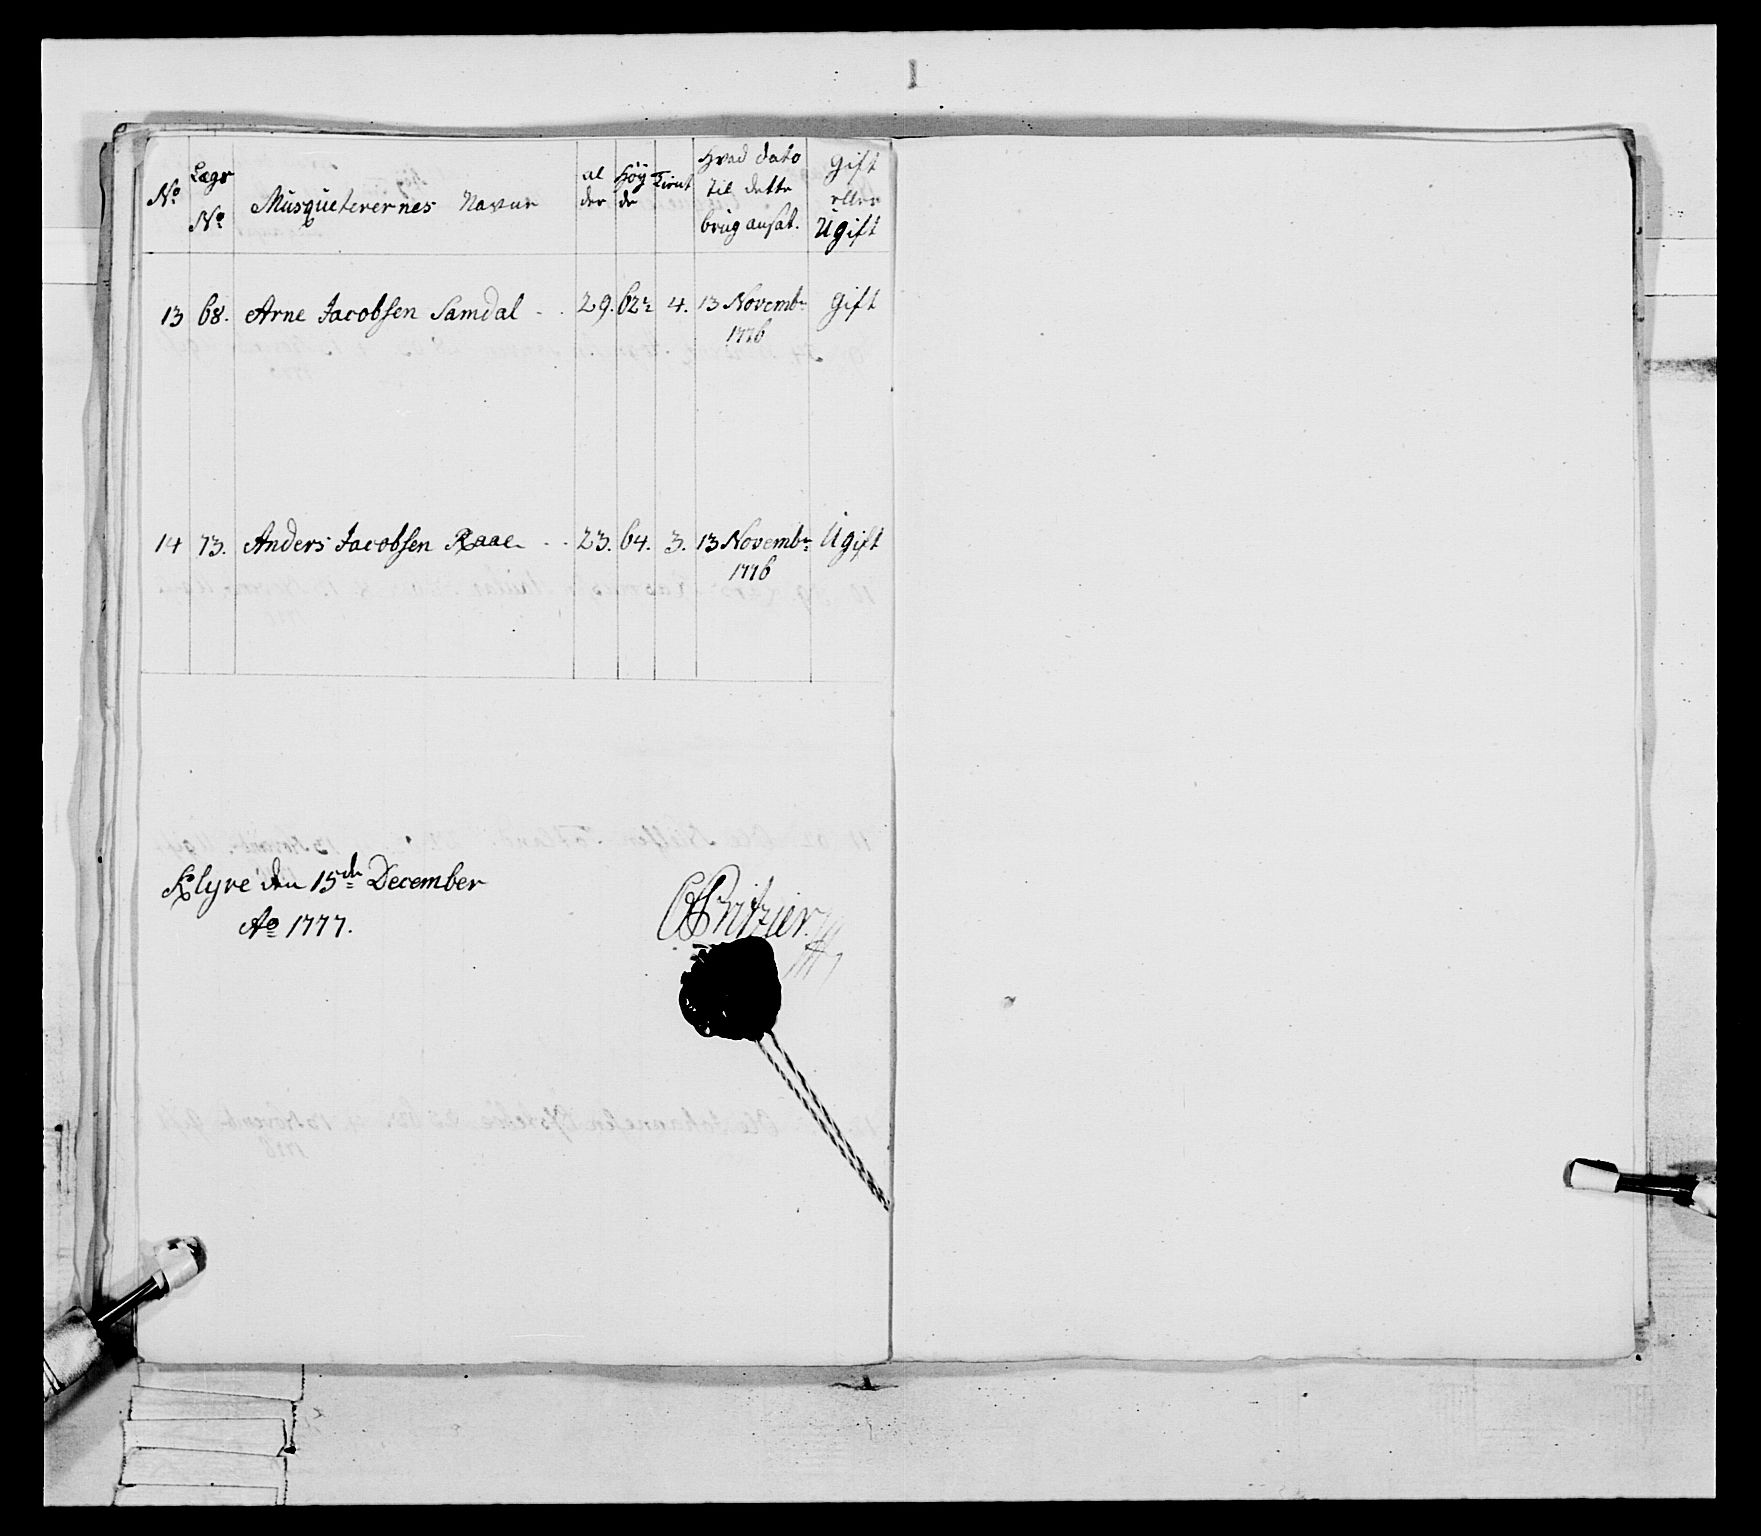 No. Lægs No. Musqueterernes Navne al der Høy de Tient Hvad dato til dette brug ansat. Gift eller Ugift
13 68. Arne Jacobsen Samdal - . 29. 62½ 4. 13 Novembr 1776 Gift
14 73. Anders Jacobsen Raae - . 23. 64. 3. 13 Novembr: 1776 Ugift
Klyve den 15de December
Ao 1777.
Pritzier.